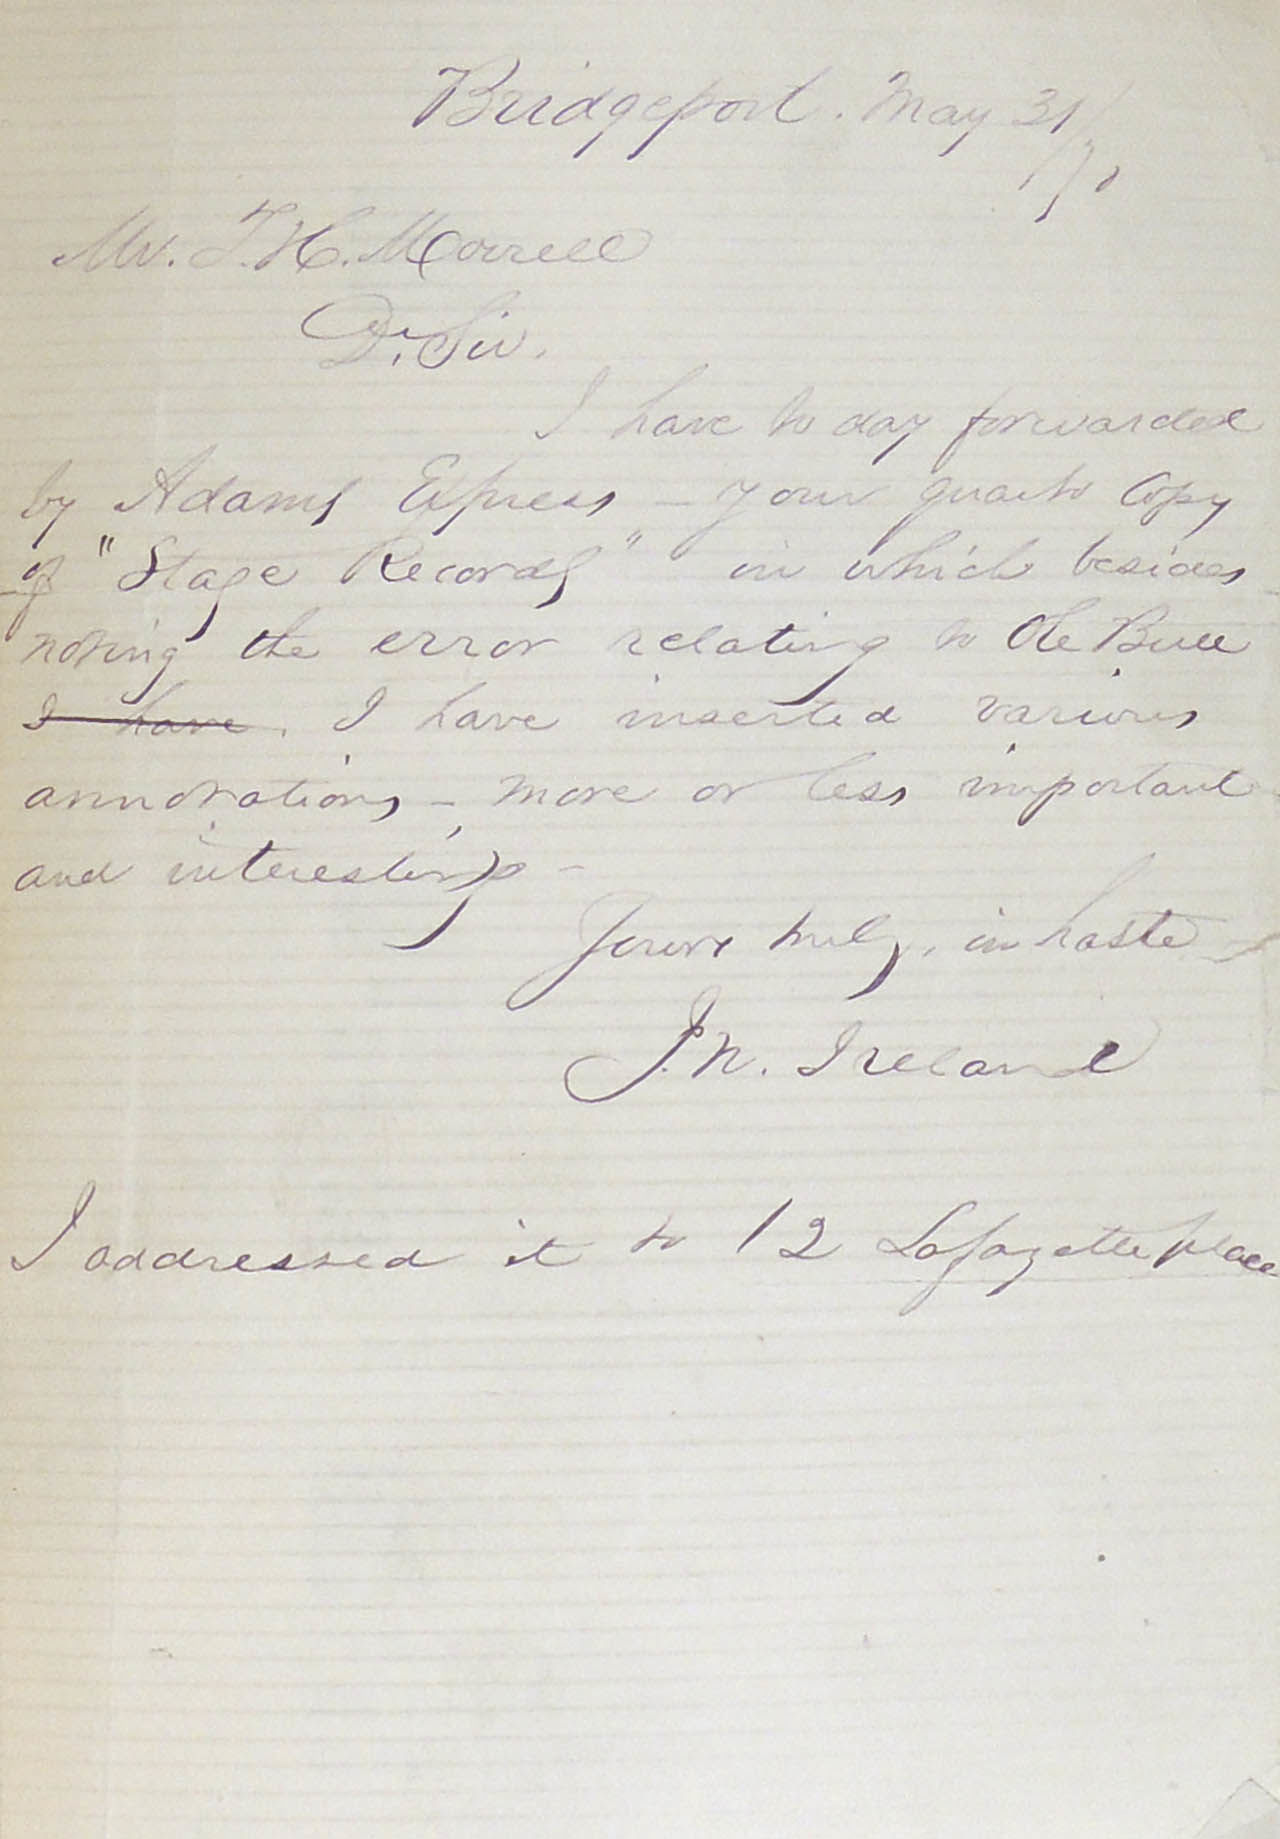 Bridgeport. May 31/
/71
Mr. T. H. Morrell
D. Sir.
I have to day forwarded
by Adams Express – your quarto Copy
of "Stage Records" in which besides
noting the error relating to Ole Bull
I have. I have inserted various
annotations, – more or less important
and interesting –
Yours truly, in haste
J. N. Ireland
I addressed it to 12 Lafayette place